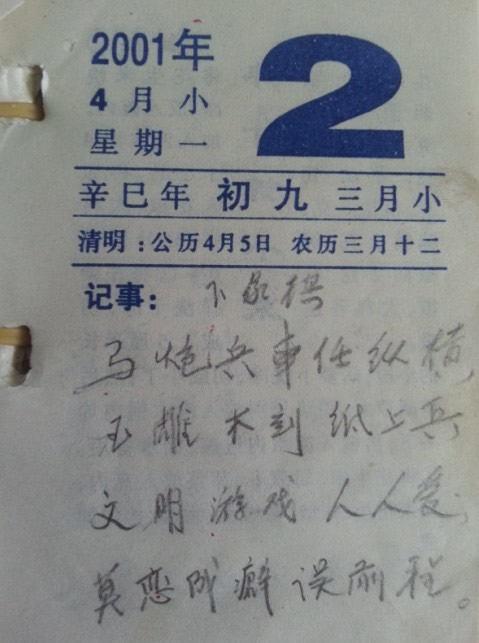 2001年
2
4月小
星期一
辛巳年 初九 三月小
清明：公历4月5日 农历三月十二
记事： 下象棋
马炮兵車任纵横，
玉雕木刻纸上兵
文明游戏人人爱，
莫恋成癖误前程。